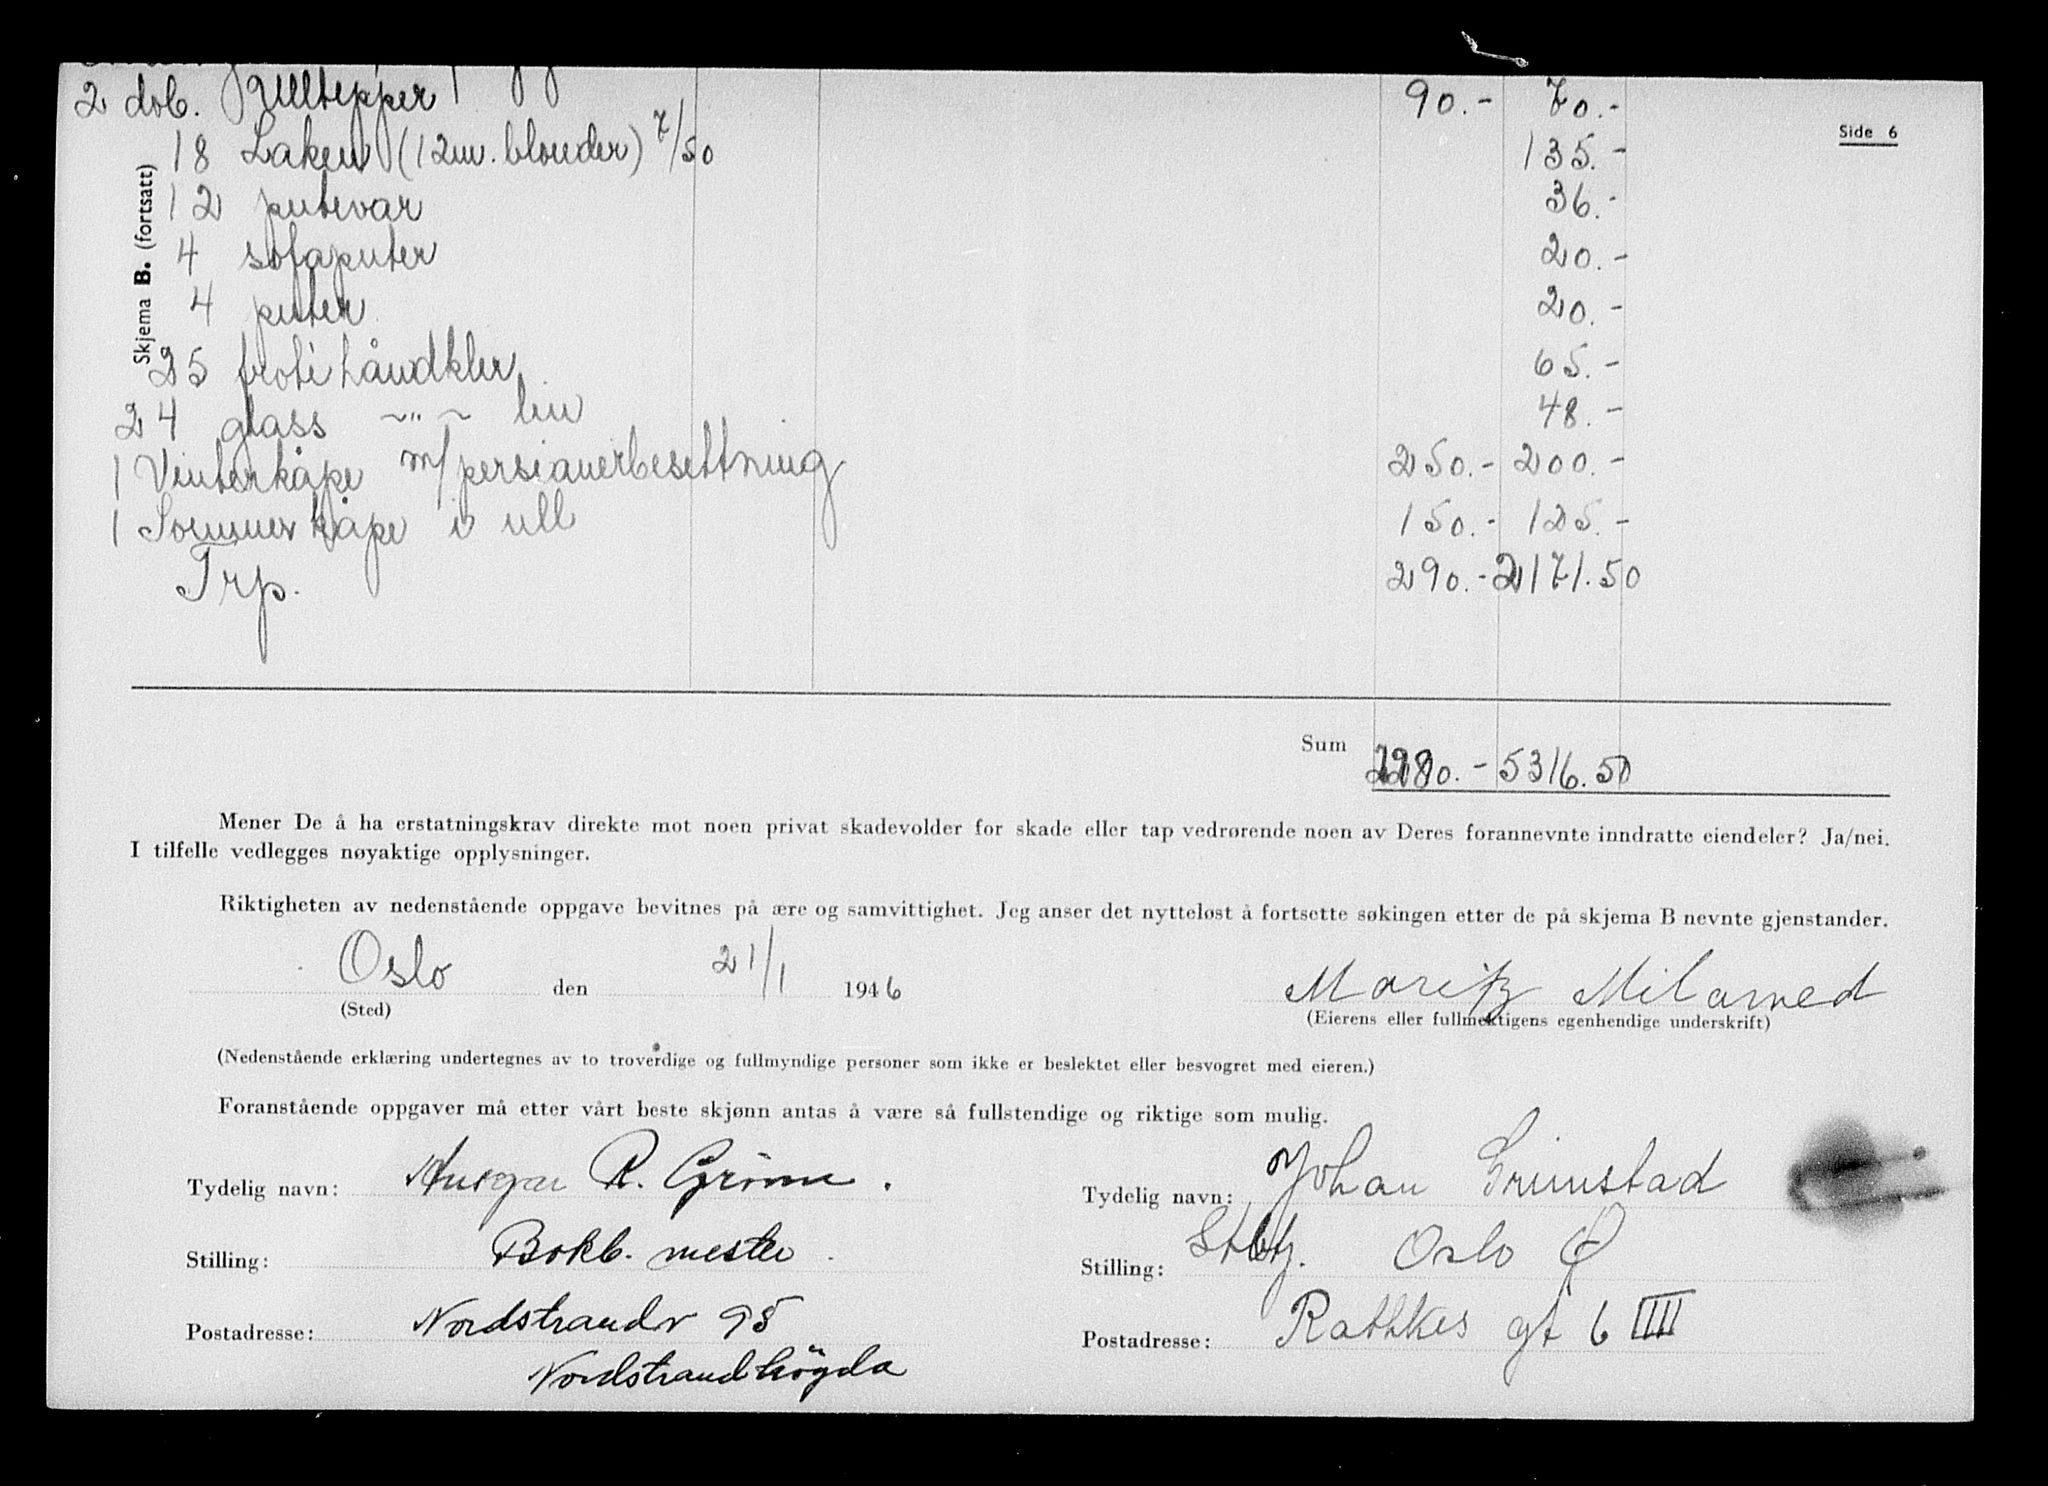 2 dob. ulltepper 90.- 70.-
Side 6
Skjema B. (fortsatt)
18 Laken (12 m. blonder) 7/50 135.-
12 putevar 36.-
4 sofaputer 20.-
4 puter 20.-
25 froti håndklær 65.-
24 glass -"- lin 48.-
1 Vinterkåpe m/persianerbesettning 250.- 200.-
1 Sommerkåpe i ull 150.- 125.-
Trp. 290.- 2171.50
Sum 5316.50
Mener De å ha erstatningskrav direkte mot noen privat skadevolder for skade eller tap vedrørende noen av Deres forannevnte inndratte eiendeler? Ja/nei.
I tilfelle vedlegges nøyaktige opplysninger.
Riktigheten av nedenstående oppgave bevitnes på ære og samvittighet. Jeg anser det nytteløst å fortsette søkingen etter de på skjema B nevnte gjenstander.
Oslo den 21/1 1946 Moritz Milarned
(Sted) (Eierens eller fullmektigens egenhendige underskrift)
(Nedenstående erklæring undertegnes av to troverdige og fullmyndige personer som ikke er beslektet eller besvogret med eieren.)
Foranstående oppgaver må etter vårt beste skjønn antas å være så fullstendige og riktige som mulig.
Tydelig navn: Ansgar R. Grimm. Tydelig navn: Johan Grimstad
Stilling: Bokb. mester Stilling: Oslo Ø
Postadresse: Nordstrandv 95 Postadresse: Rathkes gt 6 IIII
Nordstrandhögda